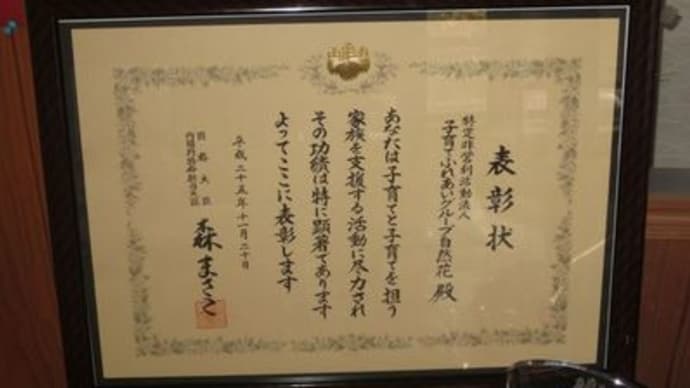 表彰状
特定非営利活動法人
子育てふれあいグループ自然花 殿
あなたは子育てと子育てを担う
家族を支援する活動に尽力され
その功績は特に顕著であります
よってここに表彰します
平成二十五年十一月二十日
国務大臣
内閣府特命担当大臣
森まさこ